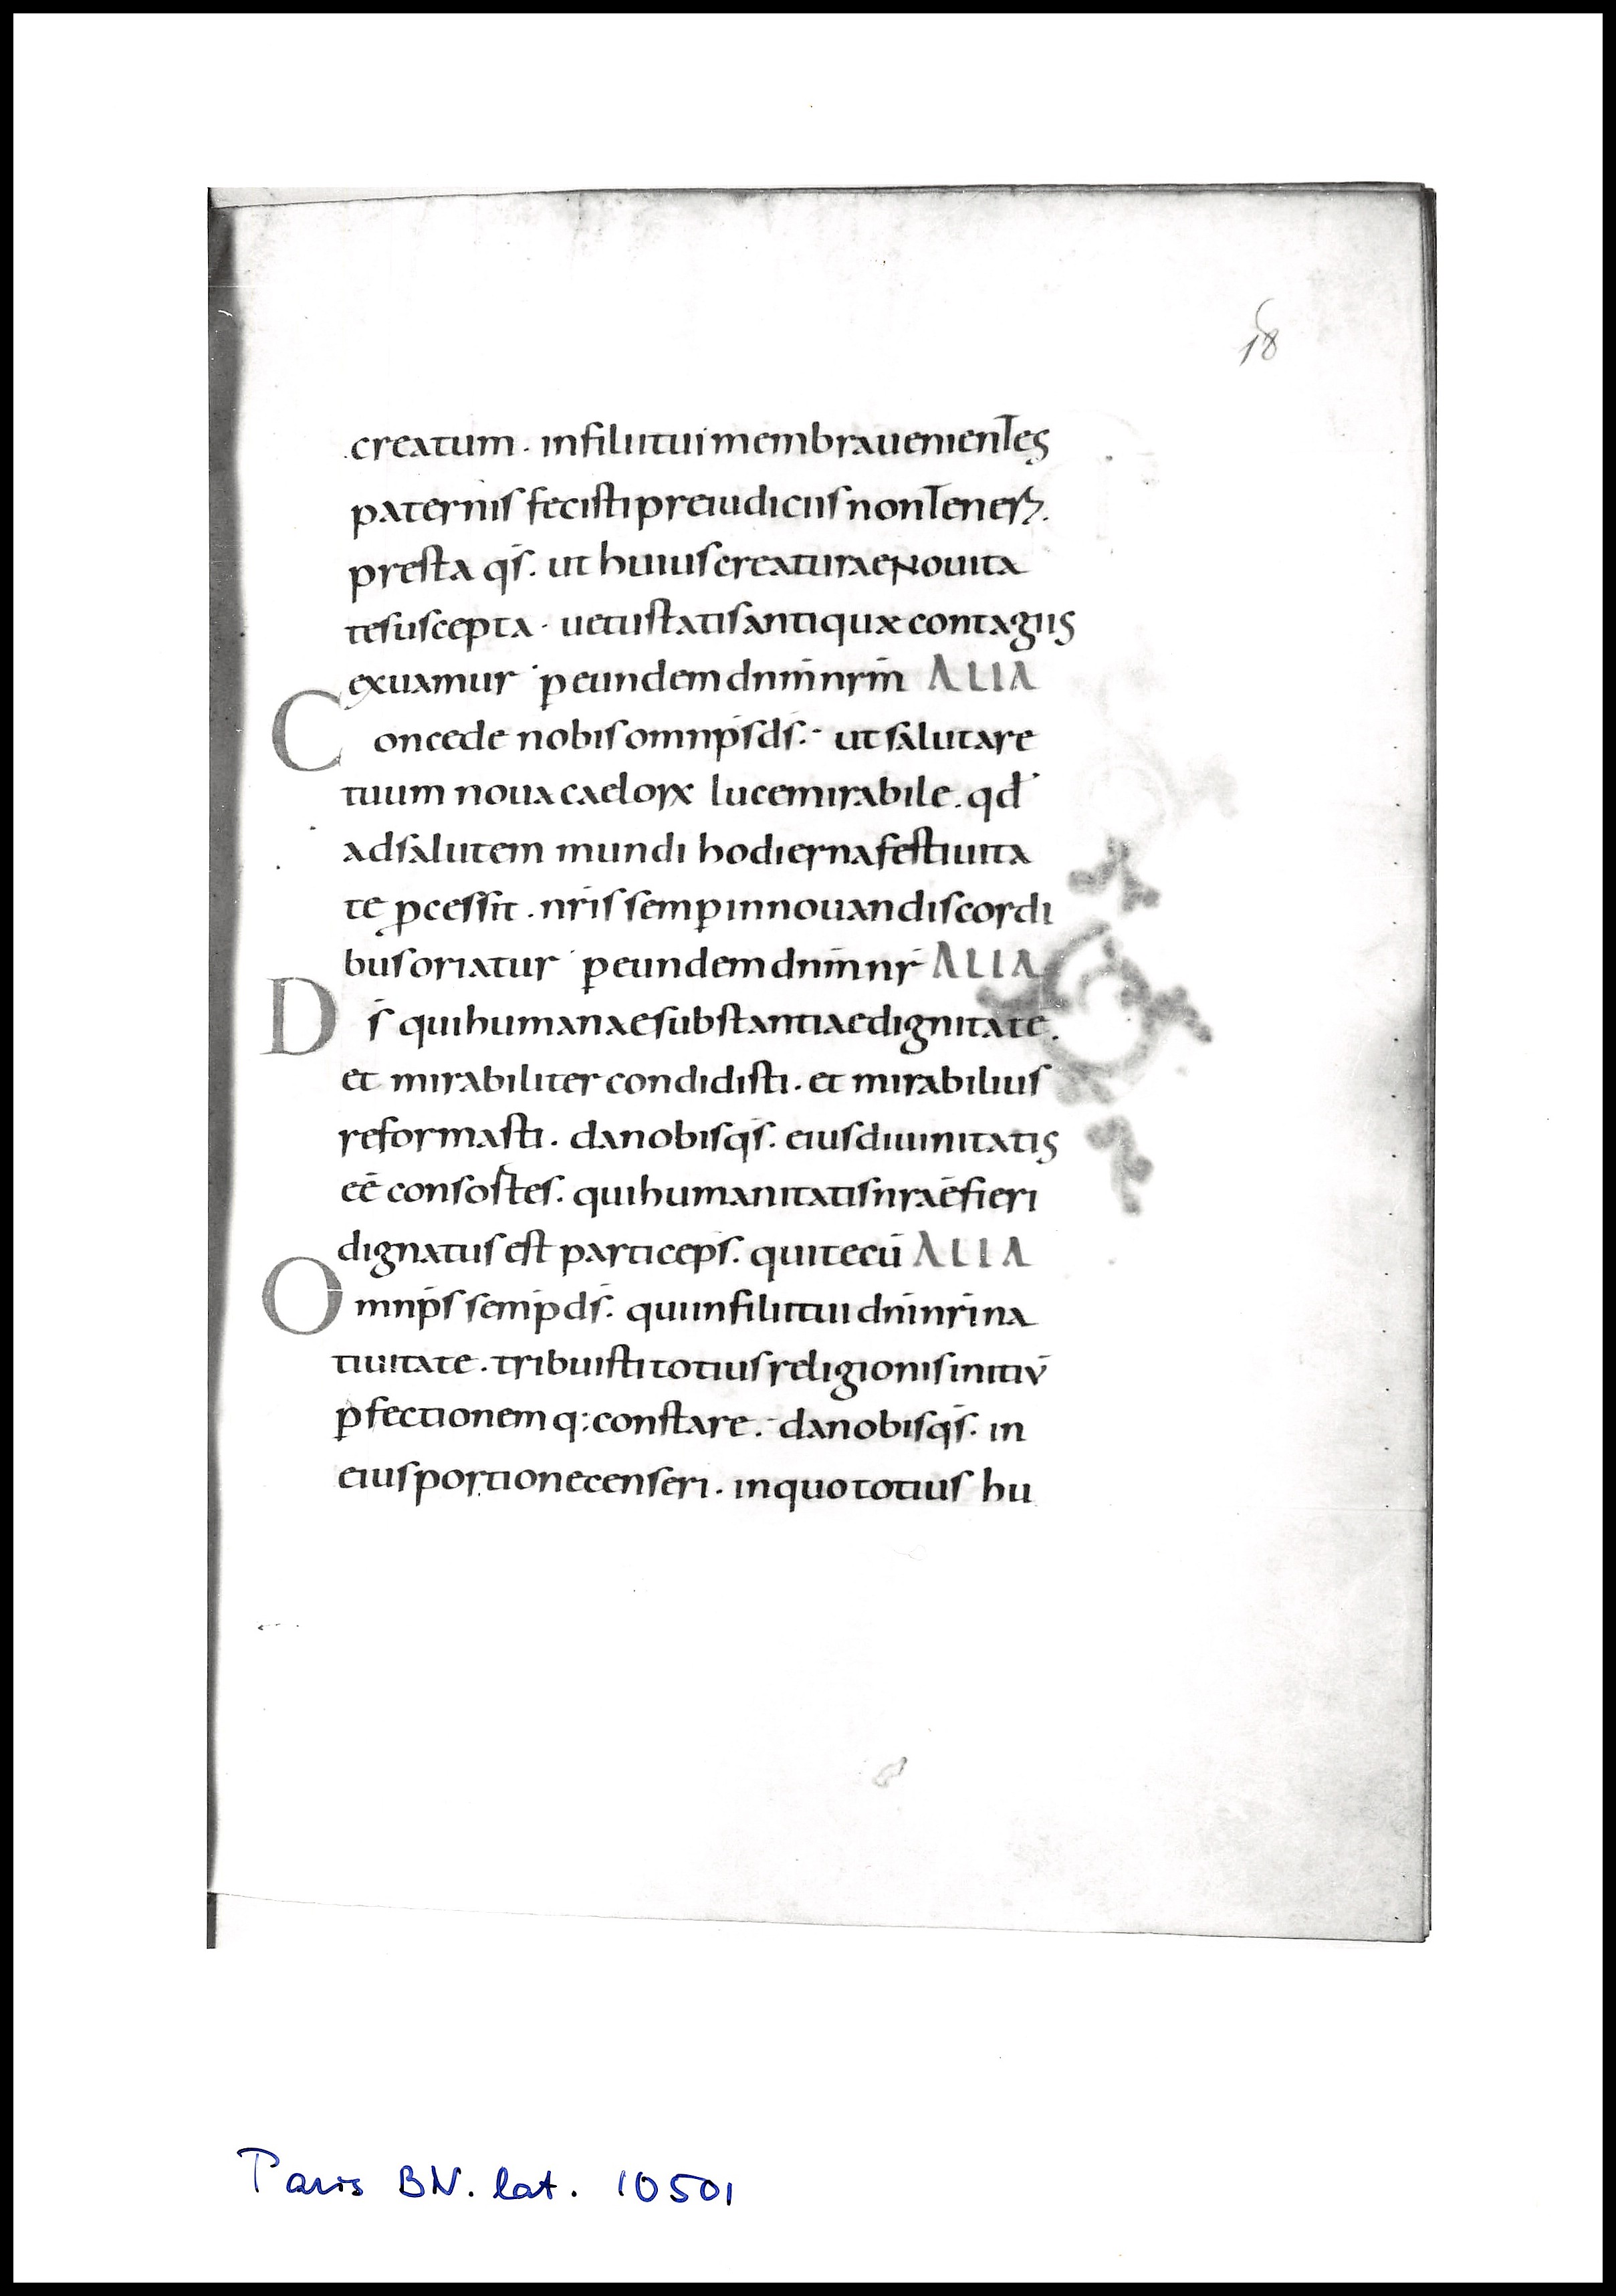 18
creatum . infilii tui membra uenientes
paternis fecisti preiudiciis non tenerꝫ.
presta qs̄. ut huius creaturae Nouita
te suscepta . uetustatis antiquae contagiis
exuamur p̄ eundem dnm̄ nrm̄ ALIA
Concede nobis omnp̄s ds̄. ut salutare
tuum noua caeloꝝ luce mirabile . qđ
ad salutem mundi hodierna festiuita
te ꝓcessit . nr̄is semꝑ innouandis cordi
bus oriatur ꝑ eundem dnm̄ nr̄ ALIA
Ds̄ qui humanae substantiae dignitate.
et mirabiliter condidisti . et mirabilius
reformasti . da nobis qs̄. eius diuinitatis
eē consostes. qui humanitatis nr̄ae fieri
dignatus est particeps. qui tecū ALIA
Omnp̄s semp̄ ds̄. qui in filii tui dn̄i nr̄i na
tiuitate . tribuisti totius religionis initiū
ꝑfectionemq: constare . da nobis qs̄. in
eius portione censeri . in quo totius hu
Paris BN. lat. 10501